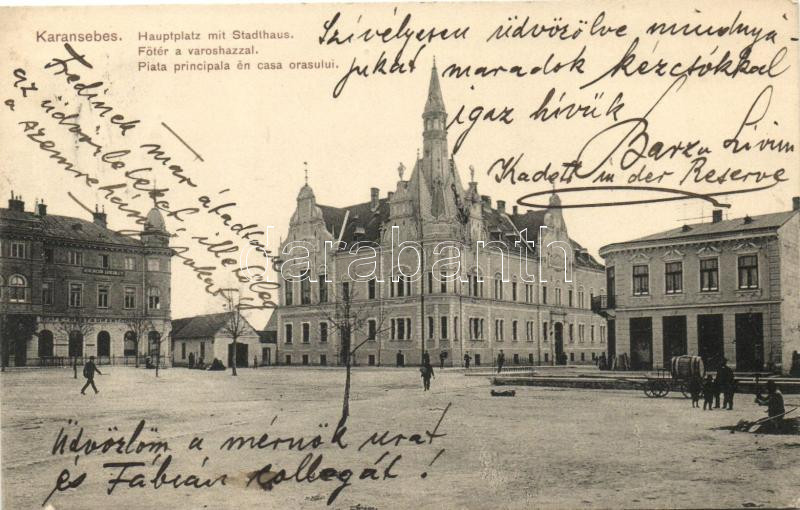 Karansebes. Hauptplatz mit Stadthaus.
Főtér a varoshazzal.
Piata principala ĕn casa orasului.
Szívélyesen üdvözölve mindnyá-
jukat maradok kézcsókkal
igaz hívük
Barzu Livius
Kadett in der Reserve
Fedinek már átadtam
az üdvözleteket illetőleg
a
darabanth.com
Üdvözlöm a mérnök urat
és Fábián kollegát!